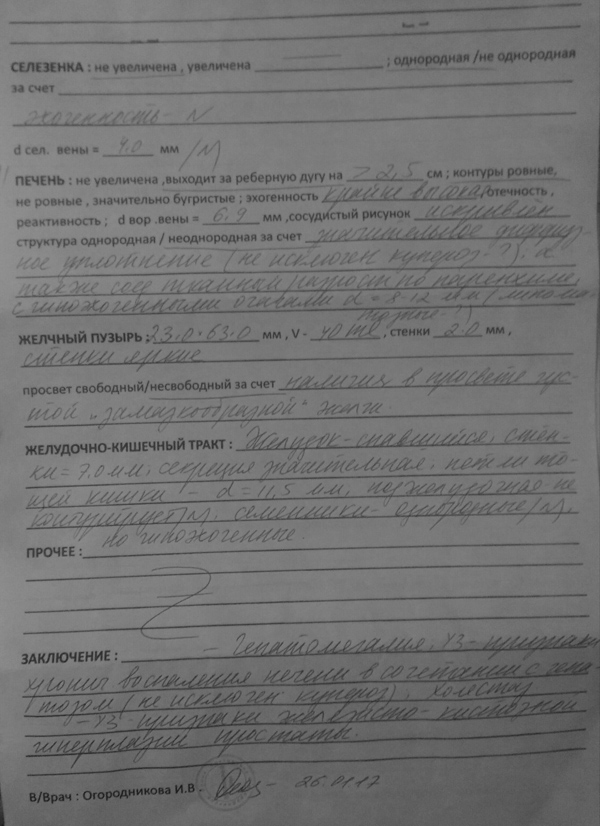 СЕЛЕЗЕНКА : не увеличена , увеличена ; однородная /не однородная
за счет
эхогенность - N
d сел. вены = 4,0 мм /N
ПЕЧЕНЬ : не увеличена ,выходит за реберную дугу на > 2,5 см ; контуры ровные,
не ровные , значительно бугристые ; эхогенность крайне высокая, отечность ,
реактивность ; d вор .вены = 6,9 мм ,сосудистый рисунок искривлён
структура однородная / неоднородная за счет значительное диффуз-
ное уплотнение (не исключен купероз-?), а
также сосе тканный разрост по паренхиме,
с гипоэхогенными очагами d = 8-12 мм (липома-
тозные-!)
ЖЕЛЧНЫЙ ПУЗЫРЬ : 23,0 * 63,0 мм , V - 40 ml , стенки 2,0 мм ,
стенки яркие
просвет свободный/несвободный за счет наличия в просвете гус-
той „замазкообразной“ желчи.
ЖЕЛУДОЧНО-КИШЕЧНЫЙ ТРАКТ : Желудок - спавшийся, стен-
ки = 7,0 мм, секреция значительная, петли то-
щей кишки - d = 11,5 мм, поджелудочная - не
контурирует/N, семенники - однородные/N,
но гипоэхогенные.
ПРОЧЕЕ :
ЗАКЛЮЧЕНИЕ : - Гепатомегалия, УЗ - признаки
хрони воспаления печени в сочетании с гепа-
тозом (не исключен купероз), холестаз
- УЗ - признаки железисто - кистозной
гиперплазии простаты.
В/Врач : Огородникова И.В - 26.01.17